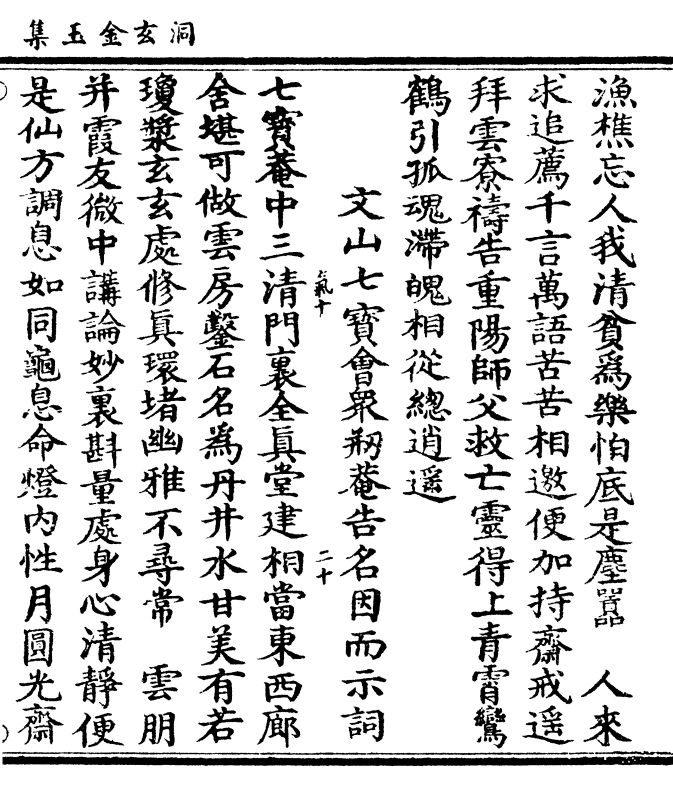 洞玄金玉集
漁樵忘人我清貧爲樂怕底是塵囂　人來
求追薦千言萬語苦苦相邀便加持齋戒遥
拜雲寮禱告重陽師父救亡靈得上青霄鸞
鶴引孤魂滯魄相從總逍遥
文山七寶會衆剏菴告名因而示詞
七寶菴中三清門裏全眞堂建相當東西廊
舍堪可做雲房鑿石名爲丹井水甘美有若
瓊漿玄玄處修眞環堵幽雅不尋常　雲朋
并霞友微中講論妙裏斟量處身心清靜便
是仙方調息如同龜息命燈内性月圓光齋
二十